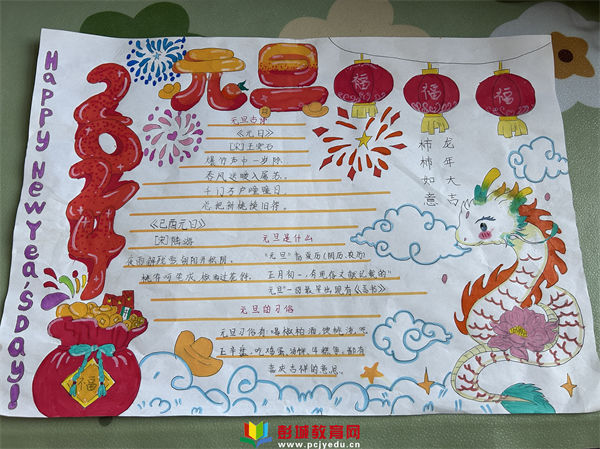 HAPPY NEW YEA'S DAY!
2024
元旦
福
福
福
龙年大吉
柿柿如意
元旦古诗
《元日》
[宋]王安石
爆竹声中一岁除,
春风送暖入屠苏。
千门万户曈曈日,
总把新桃换旧符。
《己酉元日》
[宋]陆游
夜雨解残雪 朝阳开积阴。
桃符呵笔写 椒酒过花斜。
元旦是什么
"元旦"指夏历(阴历、农历)
正月初一,有关传文献记载的"
元旦"一词最早出现于《晋书》
元旦的习俗
元旦习俗有:喝椒柏酒、馈桃汤、吃
五辛盘、吃鸡蛋、
喜庆吉祥的意思。
福
彭城教育网
www.pcjyedu.cn